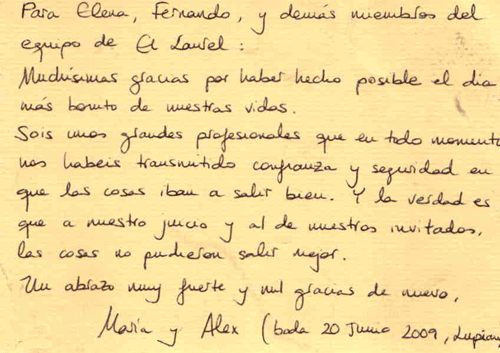 Para Elena, Fernando, y demás miembros del
equipo de El Laurel :
Muchísimas gracias por haber hecho posible el día
más bonito de nuestras vidas.
Sois unos grandes profesionales que en todo momento
nos habeis transmitido confianza y seguridad en
que las cosas iban a salir bien. Y la verdad es
que a nuestro juicio y al de nuestros invitados,
las cosas no pudieron salir mejor.
Un abrazo muy fuerte y mil gracias de nuevo,
María y Alex (boda 20 Junio 2009,